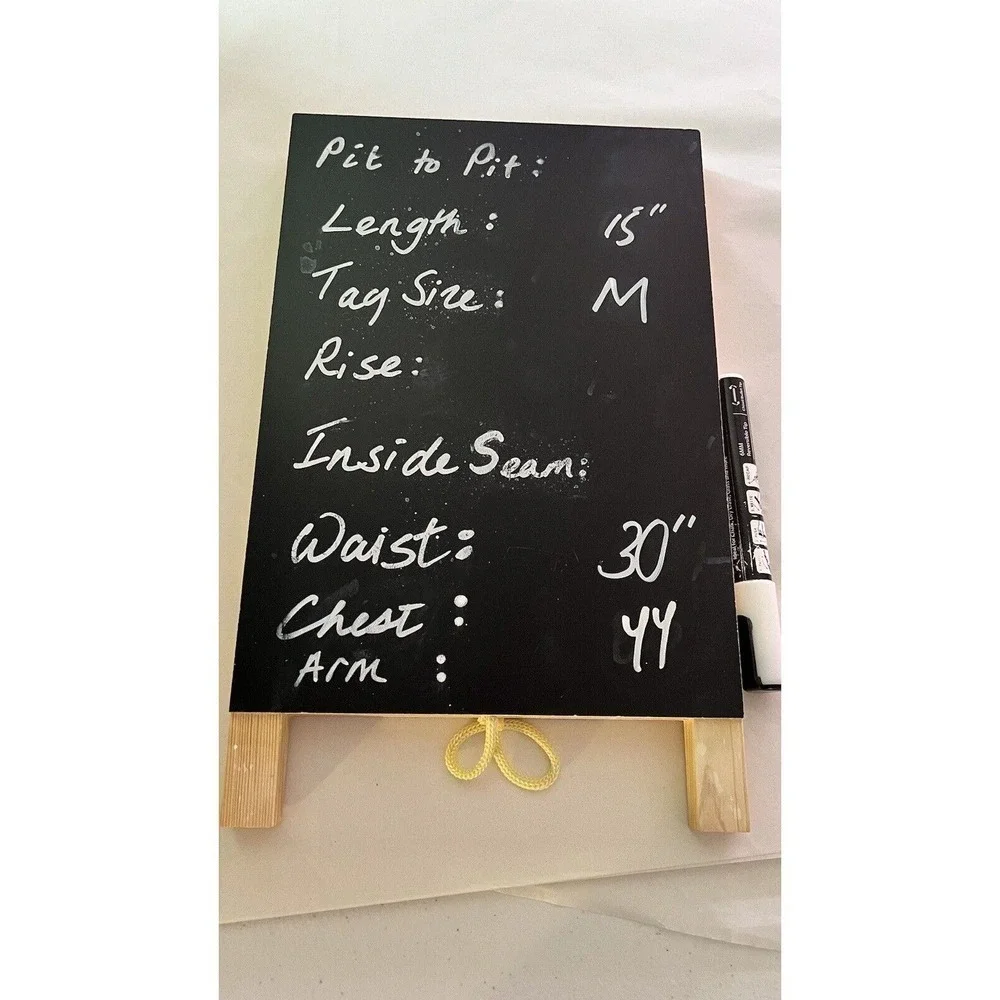 Pit to Pit:
Length: 15"
Tag Size: M
Rise:
Inside Seam:
Waist: 30"
Chest: 44
Arm:
6MM
Reversible Tip